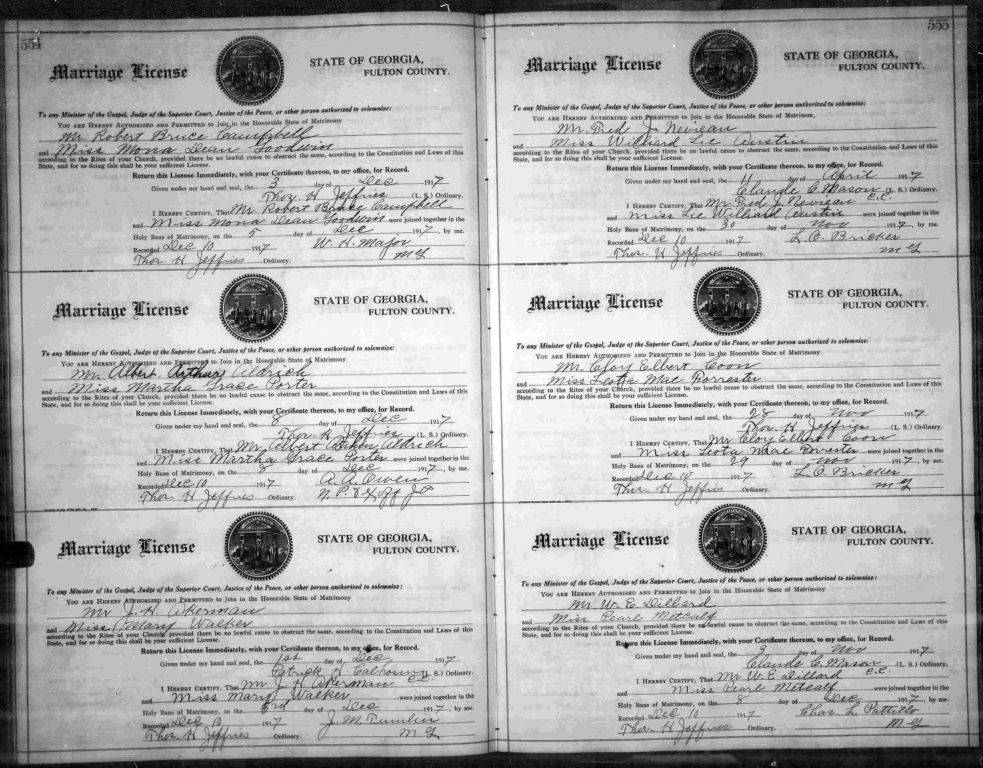 554
Marriage License
STATE OF GEORGIA,
FULTON COUNTY.
To any Minister of the Gospel, Judge of the Superior Court, Justice of the Peace, or other person authorized to solemnize:
YOU ARE HEREBY AUTHORIZED AND PERMITTED to Join in the Honorable State of Matrimony
Mr Robert Bruce Campbell
and Miss Mona Dean Goodwin
according to the Rites of your Church, provided there be no lawful cause to obstruct the same, according to the Constitution and Laws of this
State, and for so doing this shall be your sufficient License.
Return this License Immediately, with your Certificate thereon, to my office, for Record.
Given under my hand and seal, the 3 day of Dec 1917
Thos. H Jeffries (L. S.) Ordinary.
I HEREBY CERTIFY, That Mr Robert Bruce Campbell
and Miss Mona Dean Goodwin were joined together in the
Holy Bans of Matrimony, on the 5 day of Dec 1917, by me.
Recorded Dec 10 1917 W. H. Major
Thos H Jeffries Ordinary. M G
Marriage License
STATE OF GEORGIA,
FULTON COUNTY.
To any Minister of the Gospel, Judge of the Superior Court, Justice of the Peace, or other person authorized to solemnize:
YOU ARE HEREBY AUTHORIZED AND PERMITTED to Join in the Honorable State of Matrimony
Mr Albert Arthur Aldrich
and Miss Martha Grace Porter
according to the Rites of your Church, provided there be no lawful cause to obstruct the same, according to the Constitution and Laws of this
State, and for so doing this shall be your sufficient License.
Return this License Immediately, with your Certificate thereon, to my office, for Record.
Given under my hand and seal, the 8 day of Dec 1917
Thos. H Jeffries (L. S.) Ordinary.
I HEREBY CERTIFY, That Mr Albert Aldrich
and Miss Martha Grace Porter were joined together in the
Holy Bans of Matrimony, on the 8 day of Dec 1917, by me.
Recorded Dec 10 1917 A. A. Owen
Thos H Jeffries Ordinary. N. P.
Marriage License
STATE OF GEORGIA,
FULTON COUNTY.
To any Minister of the Gospel, Judge of the Superior Court, Justice of the Peace, or other person authorized to solemnize:
YOU ARE HEREBY AUTHORIZED AND PERMITTED to Join in the Honorable State of Matrimony
Mr J. H. Akerman
and Miss Mary Walker
according to the Rites of your Church, provided there be no lawful cause to obstruct the same, according to the Constitution and Laws of this
State, and for so doing this shall be your sufficient License.
Return this License Immediately, with your Certificate thereon, to my office, for Record.
Given under my hand and seal, the 1st day of Dec 1917
Patrick H Calhoun (L. S.) Ordinary.
I HEREBY CERTIFY, That Mr J. H Akerman C.C.
and Miss Mary Walker were joined together in the
Holy Bans of Matrimony, on the 3rd day of Dec 1917, by me.
Recorded Dec 10 1917 J. M. Tumlin
Thos H Jeffries Ordinary. M G
555
Marriage License
STATE OF GEORGIA,
FULTON COUNTY.
To any Minister of the Gospel, Judge of the Superior Court, Justice of the Peace, or other person authorized to solemnize:
YOU ARE HEREBY AUTHORIZED AND PERMITTED to Join in the Honorable State of Matrimony,
Mr. Fred J. Nevieau
and Miss Williard Lee Austin
according to the Rites of your Church, provided there be no lawful cause to obstruct the same, according to the Constitution and Laws of this
State, and for so doing this shall be your sufficient License.
Return this License Immediately, with your Certificate thereon, to my office, for Record.
Given under my hand and seal, the 11 day of April 1917
Claude C. Mason (L. S.) Ordinary.
I HEREBY CERTIFY, That Mr Fred J. Nevieau C.C.
and Miss Lee Williard Austin were joined together in the
Holy Bans of Matrimony, on the 30 day of Nov 1917, by me.
Recorded Dec 10 1917 L. O. Bricker
Thos. H Jeffries Ordinary. M G
Marriage License
STATE OF GEORGIA,
FULTON COUNTY.
To any Minister of the Gospel, Judge of the Superior Court, Justice of the Peace, or other person authorized to solemnize:
YOU ARE HEREBY AUTHORIZED AND PERMITTED to Join in the Honorable State of Matrimony
Mr. Cloy Elbert Coon
and Miss Leota Mae Forrester
according to the Rites of your Church, provided there be no lawful cause to obstruct the same, according to the Constitution and Laws of this
State, and for so doing this shall be your sufficient License.
Return this License Immediately, with your Certificate thereon, to my office, for Record.
Given under my hand and seal, the 28 day of Nov 1917
Thos. H Jeffries (L. S.) Ordinary.
I HEREBY CERTIFY, That Mr Cloy Elbert Coon
and Miss Leota Mae Forrester were joined together in the
Holy Bans of Matrimony, on the 29 day of Nov 1917, by me.
Recorded Dec 10 1917 L. O Bricker
Thos. H Jeffries Ordinary. M G
Marriage License
STATE OF GEORGIA,
FULTON COUNTY.
To any Minister of the Gospel, Judge of the Superior Court, Justice of the Peace, or other person authorized to solemnize:
YOU ARE HEREBY AUTHORIZED AND PERMITTED to Join in the Honorable State of Matrimony
Mr W. E. Dillard
and Miss Pearl Metcalf
according to the Rites of your Church, provided there be no lawful cause to obstruct the same, according to the Constitution and Laws of this
State, and for so doing this shall be your sufficient License.
Return this License Immediately, with your Certificate thereon, to my office, for Record.
Given under my hand and seal, the 3 day of Nov 1917
Claude C. Mason (L. S.) Ordinary.
I HEREBY CERTIFY, That Mr W. E Dillard C.C.
and Miss Pearl Metcalf were joined together in the
Holy Bans of Matrimony, on the 8 day of Dec 1917, by me.
Recorded Dec 10 1917 Chas. L Pattillo
Thos. H Jeffries Ordinary. M G